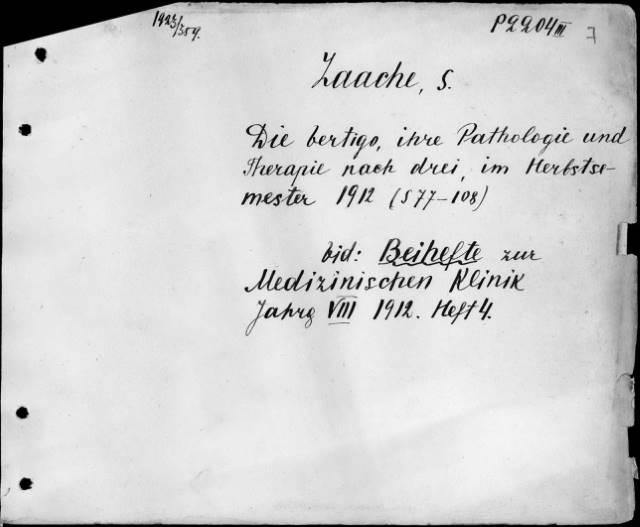 1923/309.
P2204III
Laache, S.
Die Vertigo, ihre Pathologie und
Therapie nach drei, im Herbstse-
mester 1912 (S 77-108)
vid: Beihefte zur
Medizinischen Klinik
Jahrg VIII 1912. Heft 4.